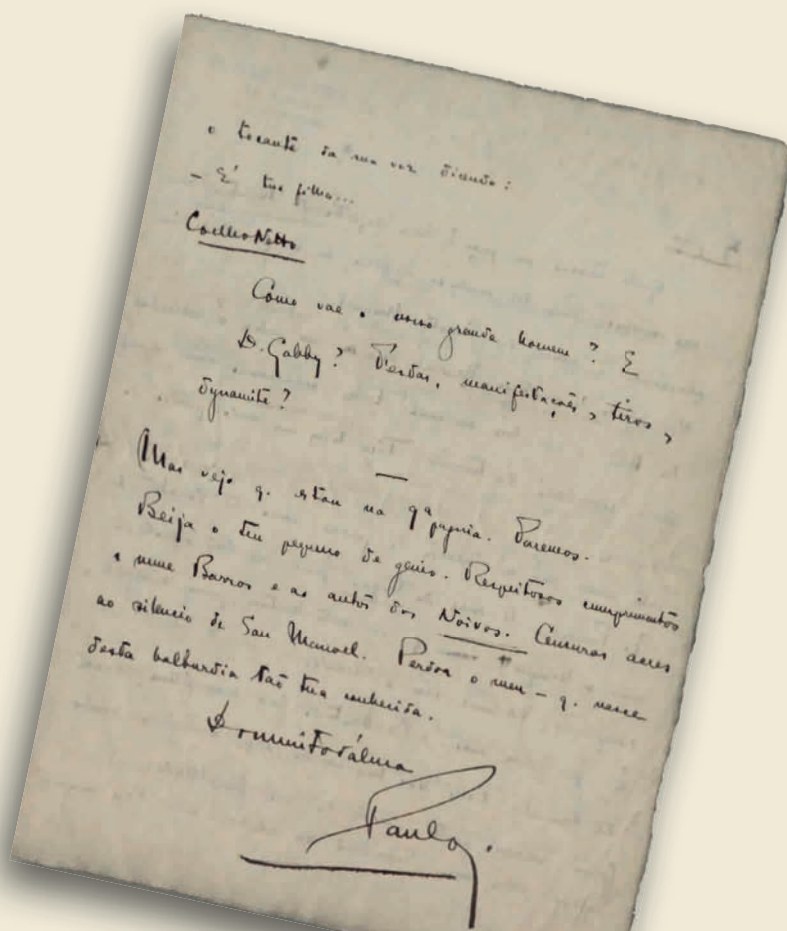 o tocante da sua voz dizendo:
– E' tua filha...
Coelho Netto
Como vae o nosso grande homem? E
D. Gabby? Festas, manifestações, tiros,
dynamite?
—
Mas vejo q. estou na 9ª pagina. Paremos.
Beija o teu pequeno de genio. Respeitosos cumprimentos
a mme Barros e ao autor dos Noivos. Censuras acres
ao silencio de San Manoel. Perdoa o meu – q. nasce
desta balburdia tão tua conhecida.
Paulo.